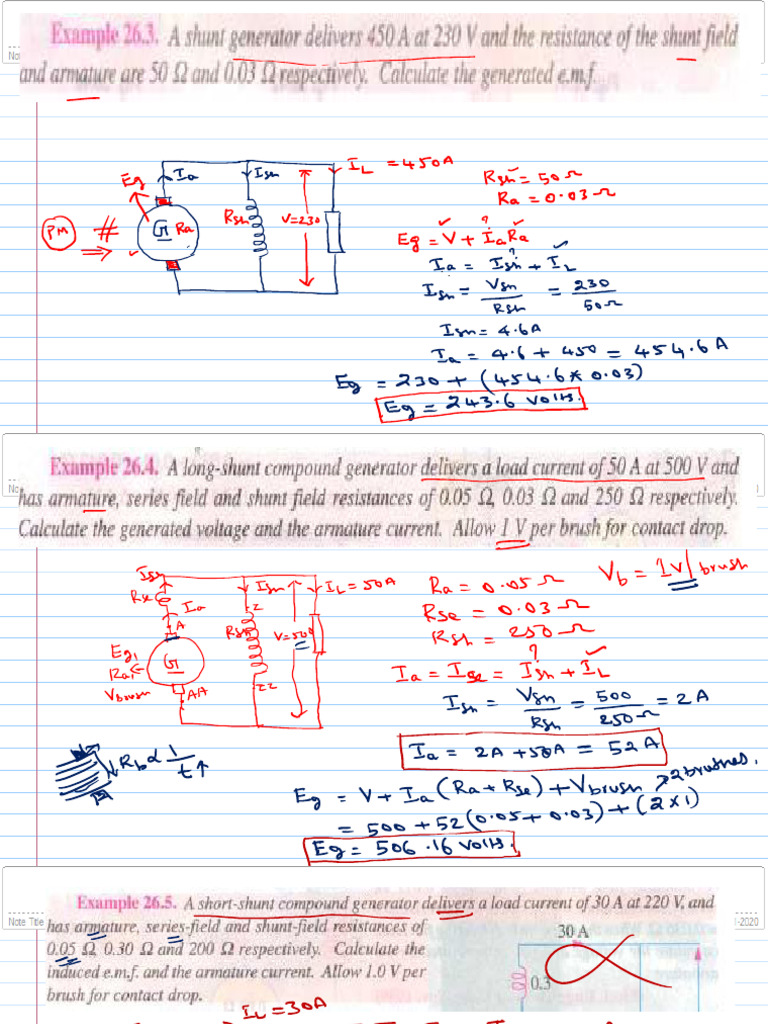 Example 26.3. A shunt generator delivers 450 A at 230 V and the resistance of the shunt field
and armature are 50 Ω and 0.03 Ω respectively. Calculate the generated e.m.f.
Eg
Ia
Ish
IL = 450A
PM
G
Ra
Rsh
V=230
Rsh = 50 Ω
Ra = 0.03 Ω
Eg = V + Ia Ra
Ia = Ish + IL
Ish = Vsh / Rsh = 230 / 50Ω
Ish = 4.6A
Ia = 4.6 + 450 = 454.6 A
Eg = 230 + (454.6 * 0.03)
Eg = 243.6 volts.
Example 26.4. A long-shunt compound generator delivers a load current of 50 A at 500 V and
has armature, series field and shunt field resistances of 0.05 Ω, 0.03 Ω and 250 Ω respectively.
Calculate the generated voltage and the armature current. Allow 1 V per brush for contact drop.
Rse
Ia
A
Ish
Z
IL = 50A
Rsh
V=500
Eg,
Ra,
Vbrush
G
AA
ZZ
Ra = 0.05 Ω
Vb = 1V/brush
Rse = 0.03 Ω
Rsh = 250 Ω
Ia = Ise = Ish + IL
Ish = Vsh / Rsh = 500 / 250 Ω = 2 A
Ia = 2A + 50A = 52 A
Rb ∝ 1 / t ↑
Eg = V + Ia (Ra + Rse) + Vbrush × 2 brushes.
= 500 + 52 (0.05 + 0.03) + (2 × 1)
Eg = 506.16 volts.
Note Title
-2020
Example 26.5. A short-shunt compound generator delivers a load current of 30 A at 220 V, and
has armature, series-field and shunt-field resistances of
0.05 Ω, 0.30 Ω and 200 Ω respectively. Calculate the
induced e.m.f. and the armature current. Allow 1.0 V per
brush for contact drop.
30 A
0.3
IL = 30A